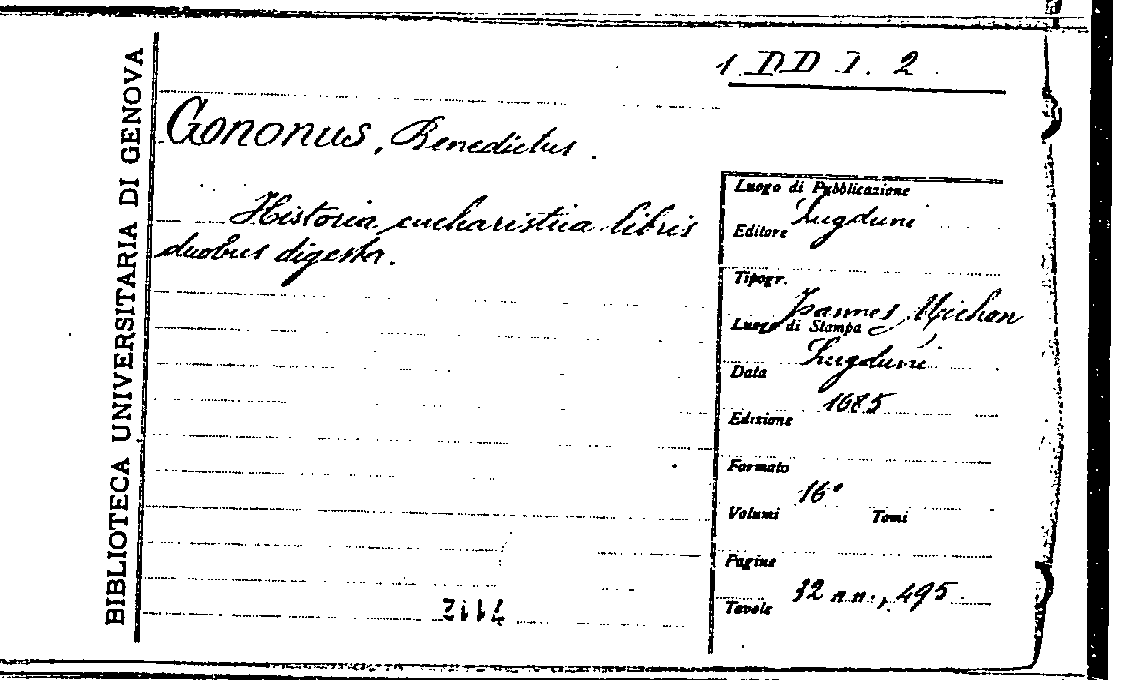 BIBLIOTECA UNIVERSITARIA DI GENOVA
1 DD I. 2
Gononus, Benedictus.
Historia eucharistica libris
duobus digesta.
Luogo di Pubblicazione
Lugduni
Editore
Tipogr.
Joannes Michon
Luogo di Stampa
Lugduni
Data
1685
Edizione
Formato
16°
Volumi Tomi
Pagine
32 n.n., 495
Tavole
7112